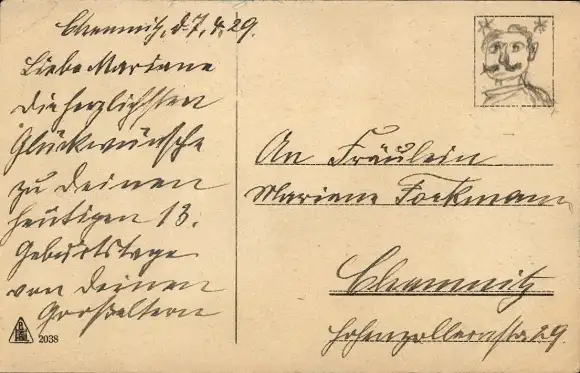 Chemnitz, d. 7. 4. 29.
Liebe Mariane
die herzlichsten
Glückwünsche
zu Deinen
heutigen 13.
Geburtstage
von Deinen
Großeltern
2038
An Fräulein
Mariane Fockmann
Chemnitz
Hohenzollernstr. 29.